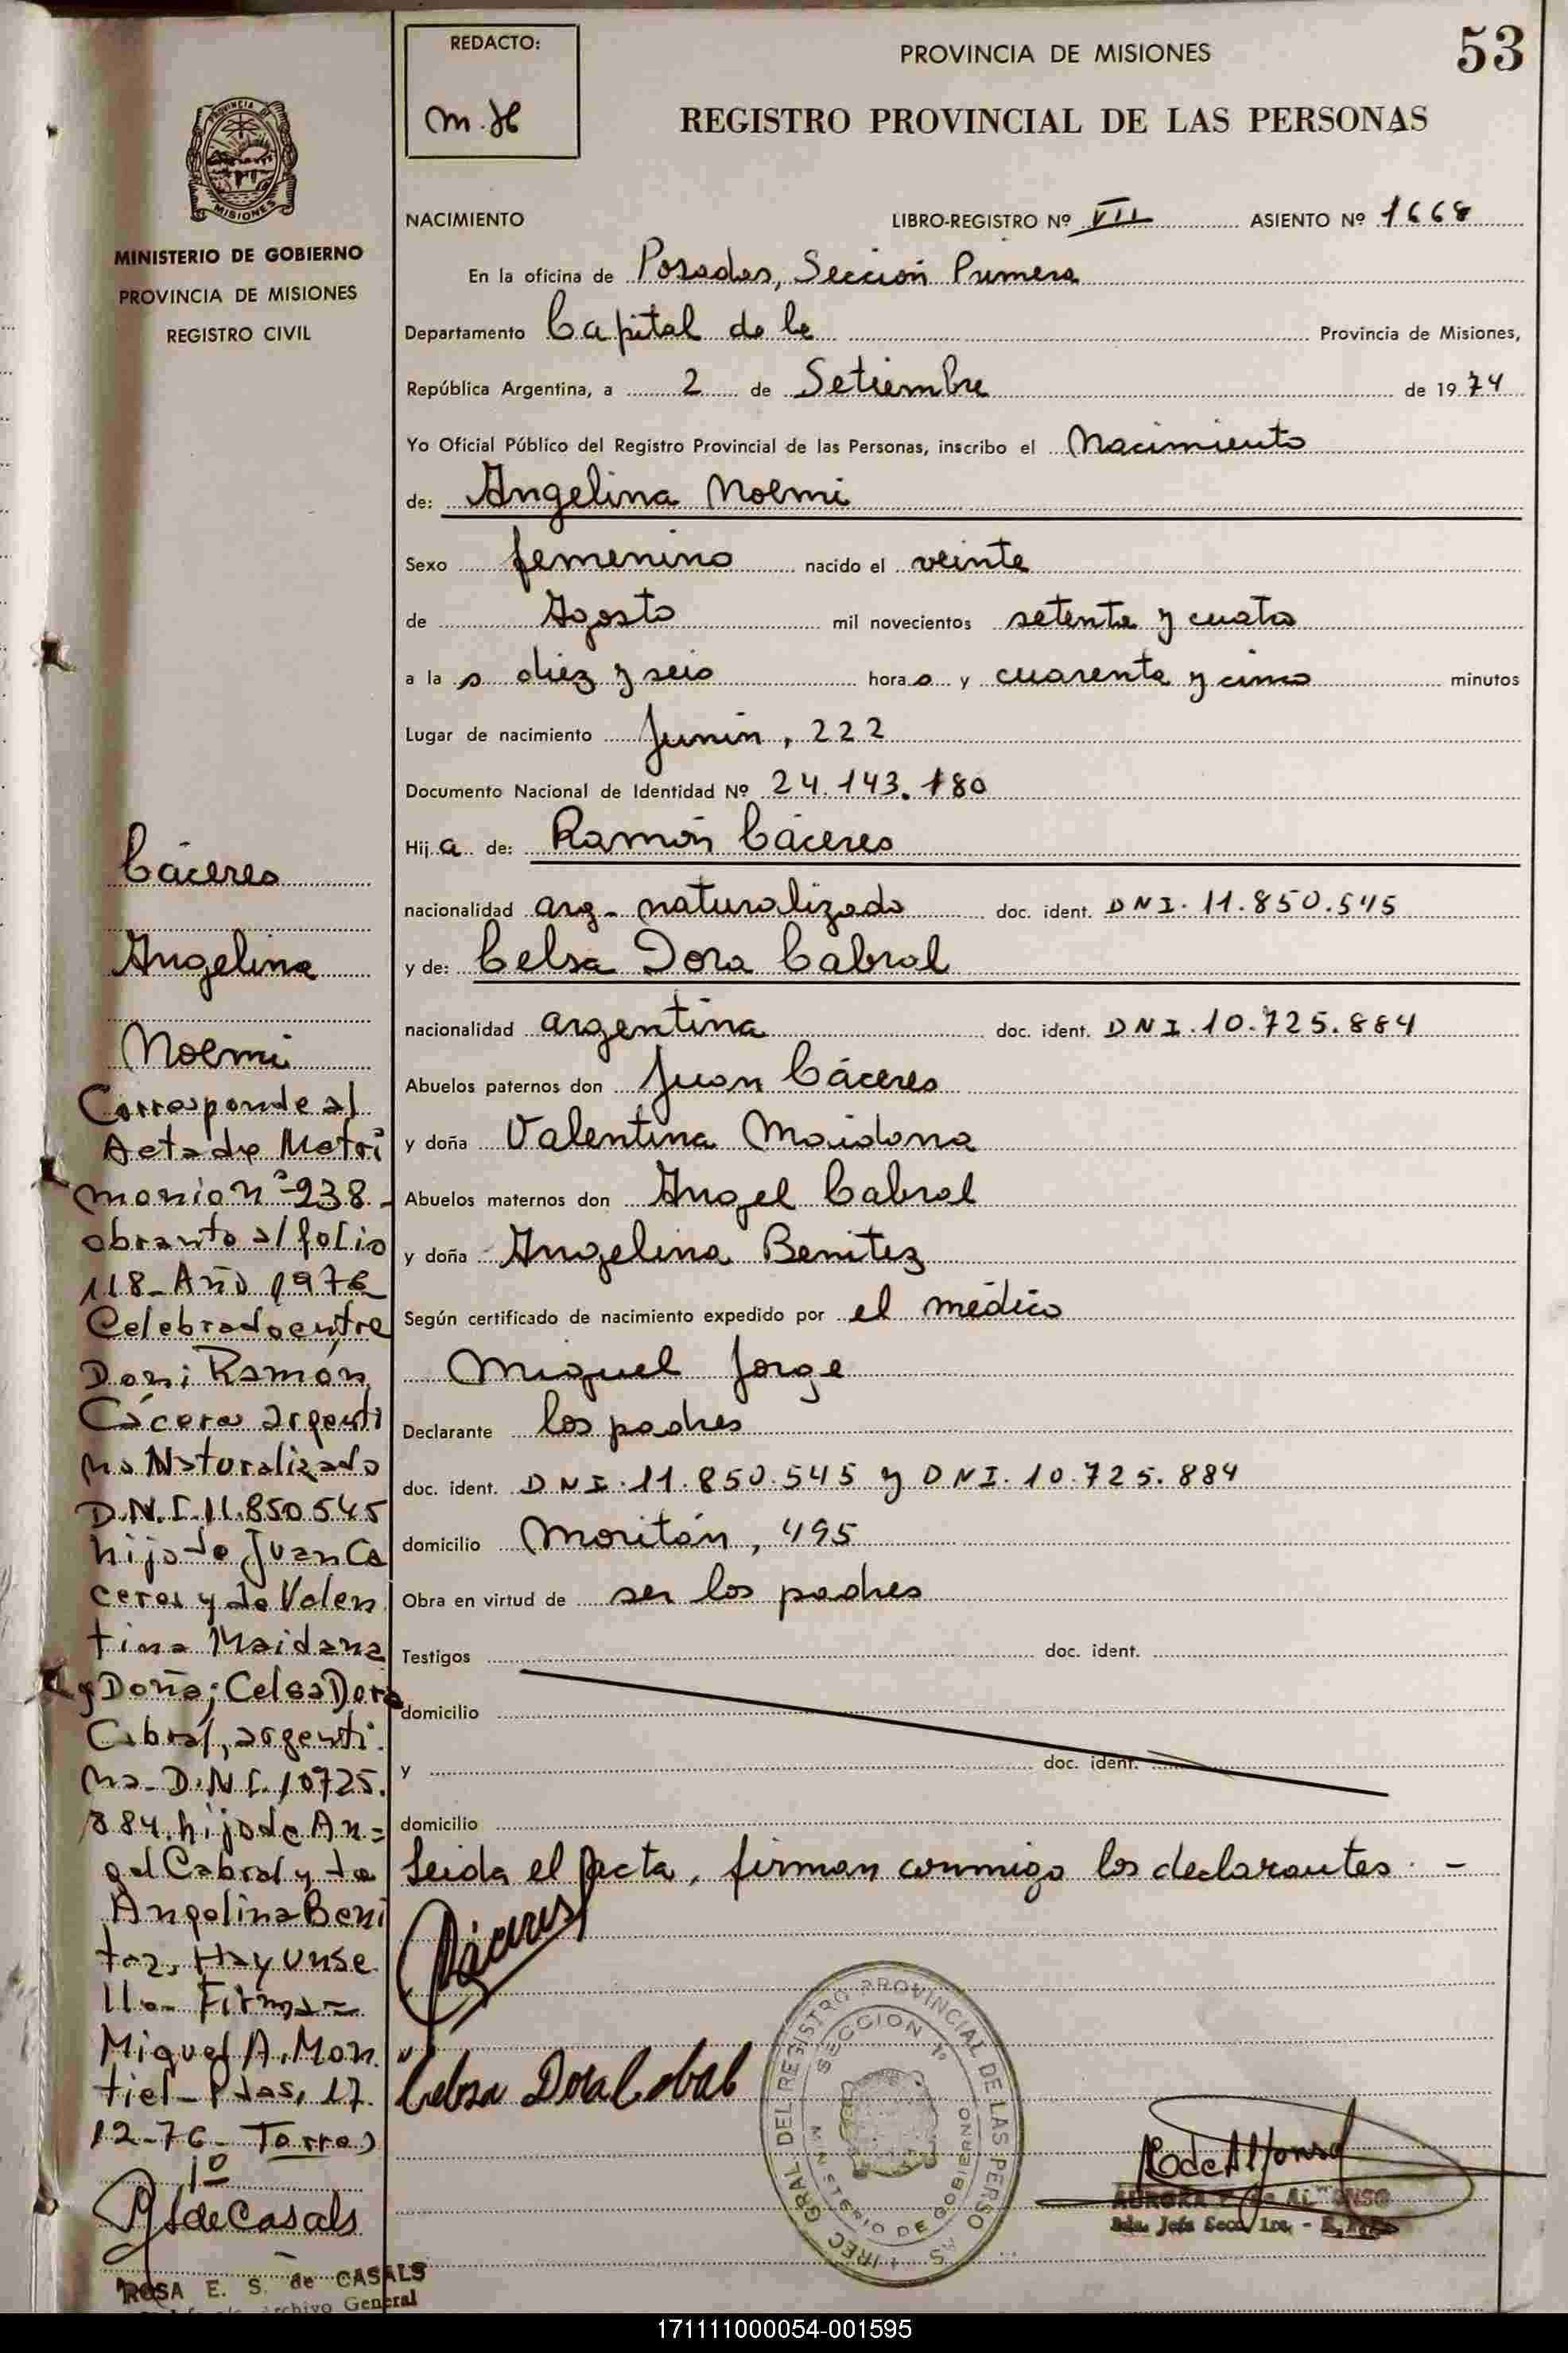 REDACTO:
m.H
PROVINCIA DE MISIONES
53
REGISTRO PROVINCIAL DE LAS PERSONAS
PROVINCIA DE
MISIONES
MINISTERIO DE GOBIERNO
PROVINCIA DE MISIONES
REGISTRO CIVIL
NACIMIENTO LIBRO-REGISTRO Nº VII ASIENTO Nº 1668
En la oficina de Posadas, Sección Primera
Departamento Capital de la Provincia de Misiones,
República Argentina, a 2 de Setiembre de 1974
Yo Oficial Público del Registro Provincial de las Personas, inscribo el Nacimiento
de: Angelina Noemi
Sexo femenino nacido el veinte
de Agosto mil novecientos setenta y cuatro
a la s diez y seis hora s y cuarenta y cinco minutos
Lugar de nacimiento Junin, 222
Documento Nacional de Identidad Nº 24.143.180
Hij a de: Ramón Cáceres
nacionalidad arg- naturalizado doc. ident. DNI. 11.850.545
y de: Celsa Dora Cabral
nacionalidad argentina doc. ident. DNI. 10.725.884
Abuelos paternos don Juan Cáceres
y doña Valentina Maidana
Abuelos maternos don Angel Cabral
y doña Angelina Benitez
Según certificado de nacimiento expedido por el médico
Miguel Jorge
Declarante los padres
doc. ident. DNI. 11.850.545 y DNI. 10.725.884
domicilio Moritán, 495
Obra en virtud de ser los padres
Testigos doc. ident.
domicilio
y doc. ident.
domicilio
Leida el Acta, firman conmigo los declarantes. -
Cáceres
Celsa Dora Cabral
DIREC GRAL DEL REGISTRO PROVINCIAL DE LAS PERSONAS
SECCION 1º
MINISTERIO DE GOBIERNO
R de Alfonso
AURORA de ALFONSO
Jefa Secc. 1ra. -
Cáceres
Angelina
Noemi
Corresponde al
Acta de Matri
monio nº 238-
obrante al folio
118- Año 1976
Celebrado entre
Don; Ramón
Cáceres argenti
no Naturalizado
D.N.I. 11.850545
hijo de Juan Cá
ceres y de Valen
tina Maidana
y Doña; Celsa Dora
Cabral, argenti.
na- D.N.I. 10725.
884. hijo de An=
gel Cabral y de
Angelina Beni
tez, Hay un se
llo- Firma=
Miguel A. Mon
tiel- Pdas, 17
12-76- Torres
1º
de Casals
ROSA E. S. de CASALS
Archivo General
171111000054-001595